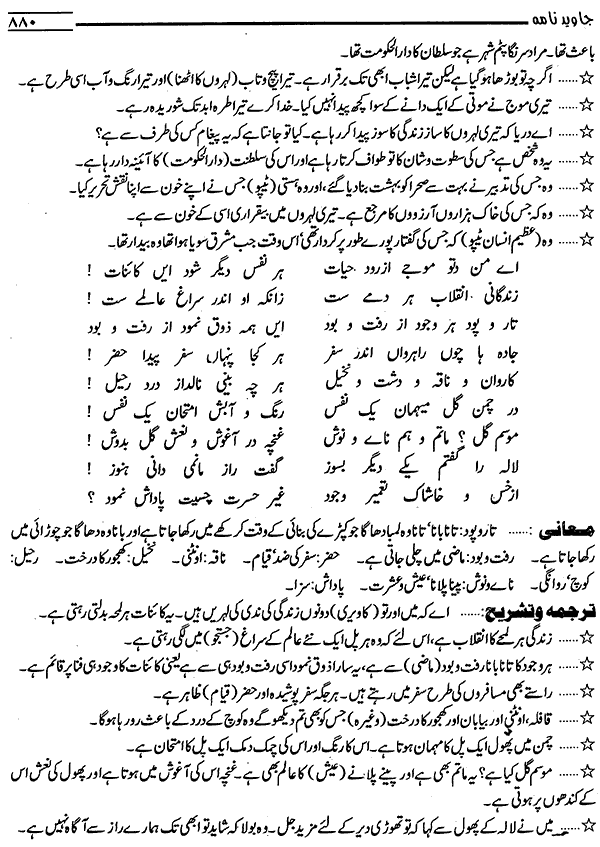 جاوید نامہ ۸۸۰
باعث تھا۔ مراد سرنگا پٹم شہر ہے جو سلطان کا دارالحکومت تھا۔
☆...... اگرچہ تو بوڑھا ہو گیا ہے لیکن تیرا شباب ابھی تک برقرار ہے۔ تیرا پیچ و تاب (لہروں کا اٹھنا) اور تیرا رنگ و آب اسی طرح ہے۔
☆...... تیری موج نے موتی کے ایک دانے کے سوا کچھ پیدا نہیں کیا۔ خدا کرے تیرا طرہ ابد تک شوریدہ رہے۔
☆...... اے دریا کہ تیری لہروں کا ساز زندگی کا سوز پیدا کر رہا ہے۔ کیا تو جانتا ہے کہ یہ پیغام کس کی طرف سے ہے؟
☆...... یہ وہ شخص ہے جس کی سطوت و شان کا تو طواف کرتا رہا ہے اور اس کی سلطنت (دارالحکومت) کا آئینہ دار رہا ہے۔
☆...... وہ جس کی تدبیر نے بہت سے صحرا کو بہشت بنا دیا گئے، اور وہ ہستی (ٹیپو) جس نے اپنے خون سے اپنا نقش تحریر کیا۔
☆...... وہ کہ جس کی خاک ہزاروں آرزووں کا مرجع ہے۔ تیری لہروں میں بیقراری اسی کے خون سے ہے۔
☆...... وہ (عظیم انسان ٹیپو) کہ جس کی گفتار پورے طور پر کردار تھی‘ اس وقت جب مشرق سویا ہوا تھا وہ بیدار تھا۔
اے من و تو موجے از رود حیات ہر نفس دیگر شود ایں کائنات !
زندگانی انقلاب ہر دمے ست زانکہ او اندر سراغ عالمے ست !
تار و پود ہر وجود از رفت و بود ایں ہمہ ذوق نمود از رفت و بود
جادہ ہا چوں راہرواں اندر سفر ہر کجا پنہاں سفر پیدا حضر !
کاروان و ناقہ و دشت و نخیل ہر چہ بینی نالد از درد رحیل !
در چمن گل میہمان یک نفس رنگ و آبش امتحان یک نفس !
موسم گل ؟ ماتم و ہم ناے و نوش غنچہ در آغوش و نعش گل بدوش !
لالہ را گفتم یکے دیگر بسوز گفت راز مانمی دانی ہنوز !
از خس و خاشاک تعمیر وجود غیر حسرت چیست پاداش نمود ؟
معانی :...... تار و پود: تانا بانا‘ تانا وہ لمبا دھاگا جو کپڑے کی بنائی کے وقت کرگھے میں رکھا جاتا ہے اور بانا وہ دھاگا جو چوڑائی میں
رکھا جاتا ہے۔ رفت و بود: ماضی میں چلی جاتی ہے۔ حضر: سفر کی ضد‘ قیام۔ ناقہ: اونٹنی۔ نخیل: کھجور کا درخت۔ رحیل:
کوچ‘ روانگی۔ ناے و نوش: پینا پلانا‘ عیش و عشرت۔ پاداش: سزا۔
ترجمہ و تشریح:...... اے کہ میں اور تو (کاویری) دونوں زندگی کی ندی کی لہریں ہیں۔ یہ کائنات ہر لمحہ بدلتی رہتی ہے۔
☆...... زندگی ہر لمحے کا انقلاب ہے، اس لئے کہ وہ ہر پل ایک نئے عالم کے سراغ (جستجو) میں لگی رہتی ہے۔
☆...... ہر وجود کا تانا بانا رفت و بود (ماضی) سے ہے، یہ سارا ذوق نمود اسی رفت و بود ہی سے ہے یعنی کائنات کا وجود ہی فنا پر قائم ہے۔
☆...... راستے بھی مسافروں کی طرح سفر میں رہتے ہیں۔ ہر جگہ سفر پوشیدہ اور حضر (قیام) ظاہر ہے۔
☆...... قافلہ، اونٹنی اور بیابان اور کھجور کا درخت (وغیرہ) جس کو بھی تم دیکھو گے وہ کوچ کے درد کے باعث رو رہا ہوگا۔
☆...... چمن میں پھول ایک پل کا مہمان ہوتا ہے۔ اس کا رنگ اور اس کی چمک دمک ایک پل کا امتحان ہے۔
☆...... موسم گل کیا ہے؟ یہ ماتم بھی ہے اور پینے پلانے (عیش) کا عالم بھی ہے۔ غنچہ اس کی آغوش میں ہوتا ہے اور پھول کی نعش اس
کے کندھوں پر ہوتی ہے۔
☆...... میں نے لالہ کے پھول سے کہا کہ تو تھوڑی دیر کے لئے مزید جل۔ وہ بولا کہ شاید تو ابھی تک ہمارے راز سے آگاہ نہیں ہے۔